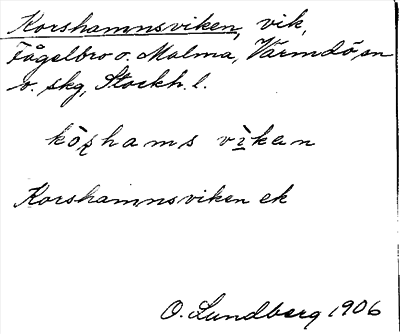 Korshamnsviken, vik,
Fågelbro o. Malma, Värmdö sn
o. skg, Stockh. l.
kòʂhams vìkan
Korshamnsviken ek
O. Lundberg 1906